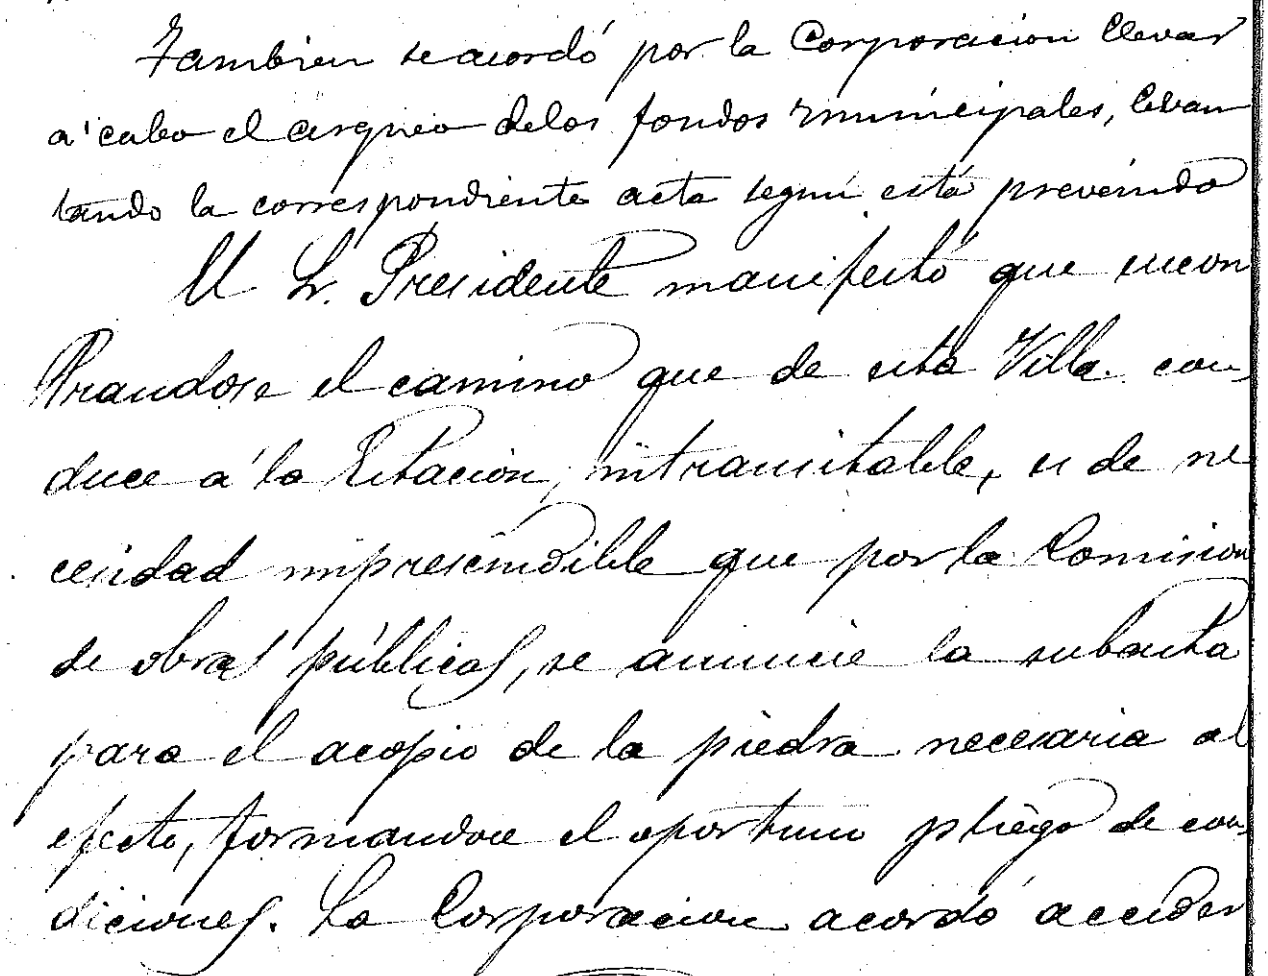 Tambien se acordó por la Corporacion llevar
a' cabo el arqueo delos fondos municipales, levan
tando la correspondiente acta segun está prevenido
El Sr. Presidente manifestó que encon
trandose el camino que de esta Villa con-
duce a' la Estación, intransitable, es de ne
cesidad imprescindible que por la Comision
de obras públicas, se anuncie la subasta
para el acopio de la piedra necesaria al
efecto, formandose el oportuno pliego de con-
diciones. La Corporacion acordó acceder